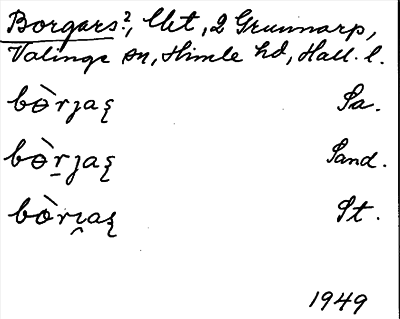 Borgars?, Ght, 2 Grunnarp,
Valinge sn, Himle hd, Hall. l.
bɵ̀rȷaʂ Sa.
bɵ̀r̠ȷaʂ Sand.
bòrı̯aʂ St.
1949